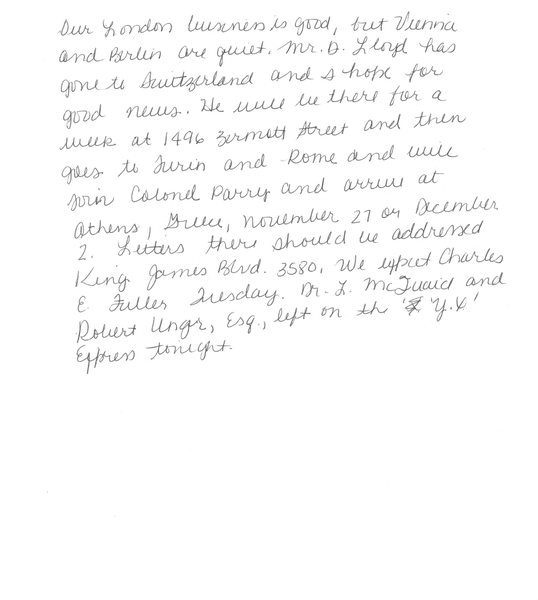 Our London business is good, but Vienna
and Berlin are quiet. Mr. D. Lloyd has
gone to Switzerland and I hope for
good news. He will be there for a
week at 1496 Zermott Street and then
goes to Turin and Rome and will
join Colonel Parry and arrive at
Athens, Greece, November 27 or December
2. Letters there should be addressed
King James Blvd. 3580. We expect Charles
E. Fuller Tuesday. Dr. L. McQuaid and
Robert Unger, Esq., left on the 'X Y.X'
Express tonight.